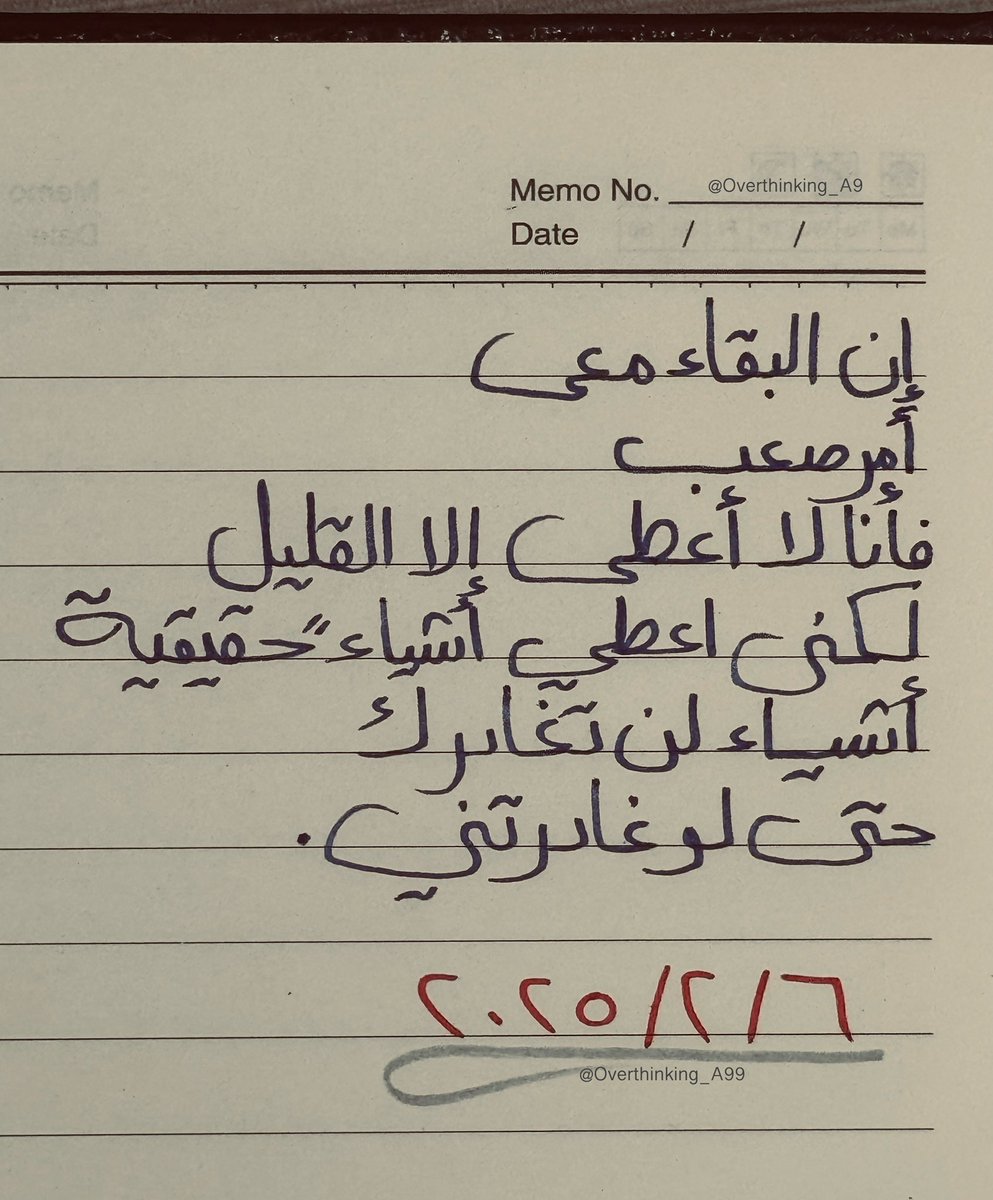 Memo No. @Overthinking_A9
Date / /
إن البقاء معى
أمر صعب
فأنا لا أعطى إلا القليل
لكنى اعطي أشياءً حقيقية
أشياء لن تغادرك
حتى لو غادرتني.
٢٠٢٥/٢/٦
@Overthinking_A99